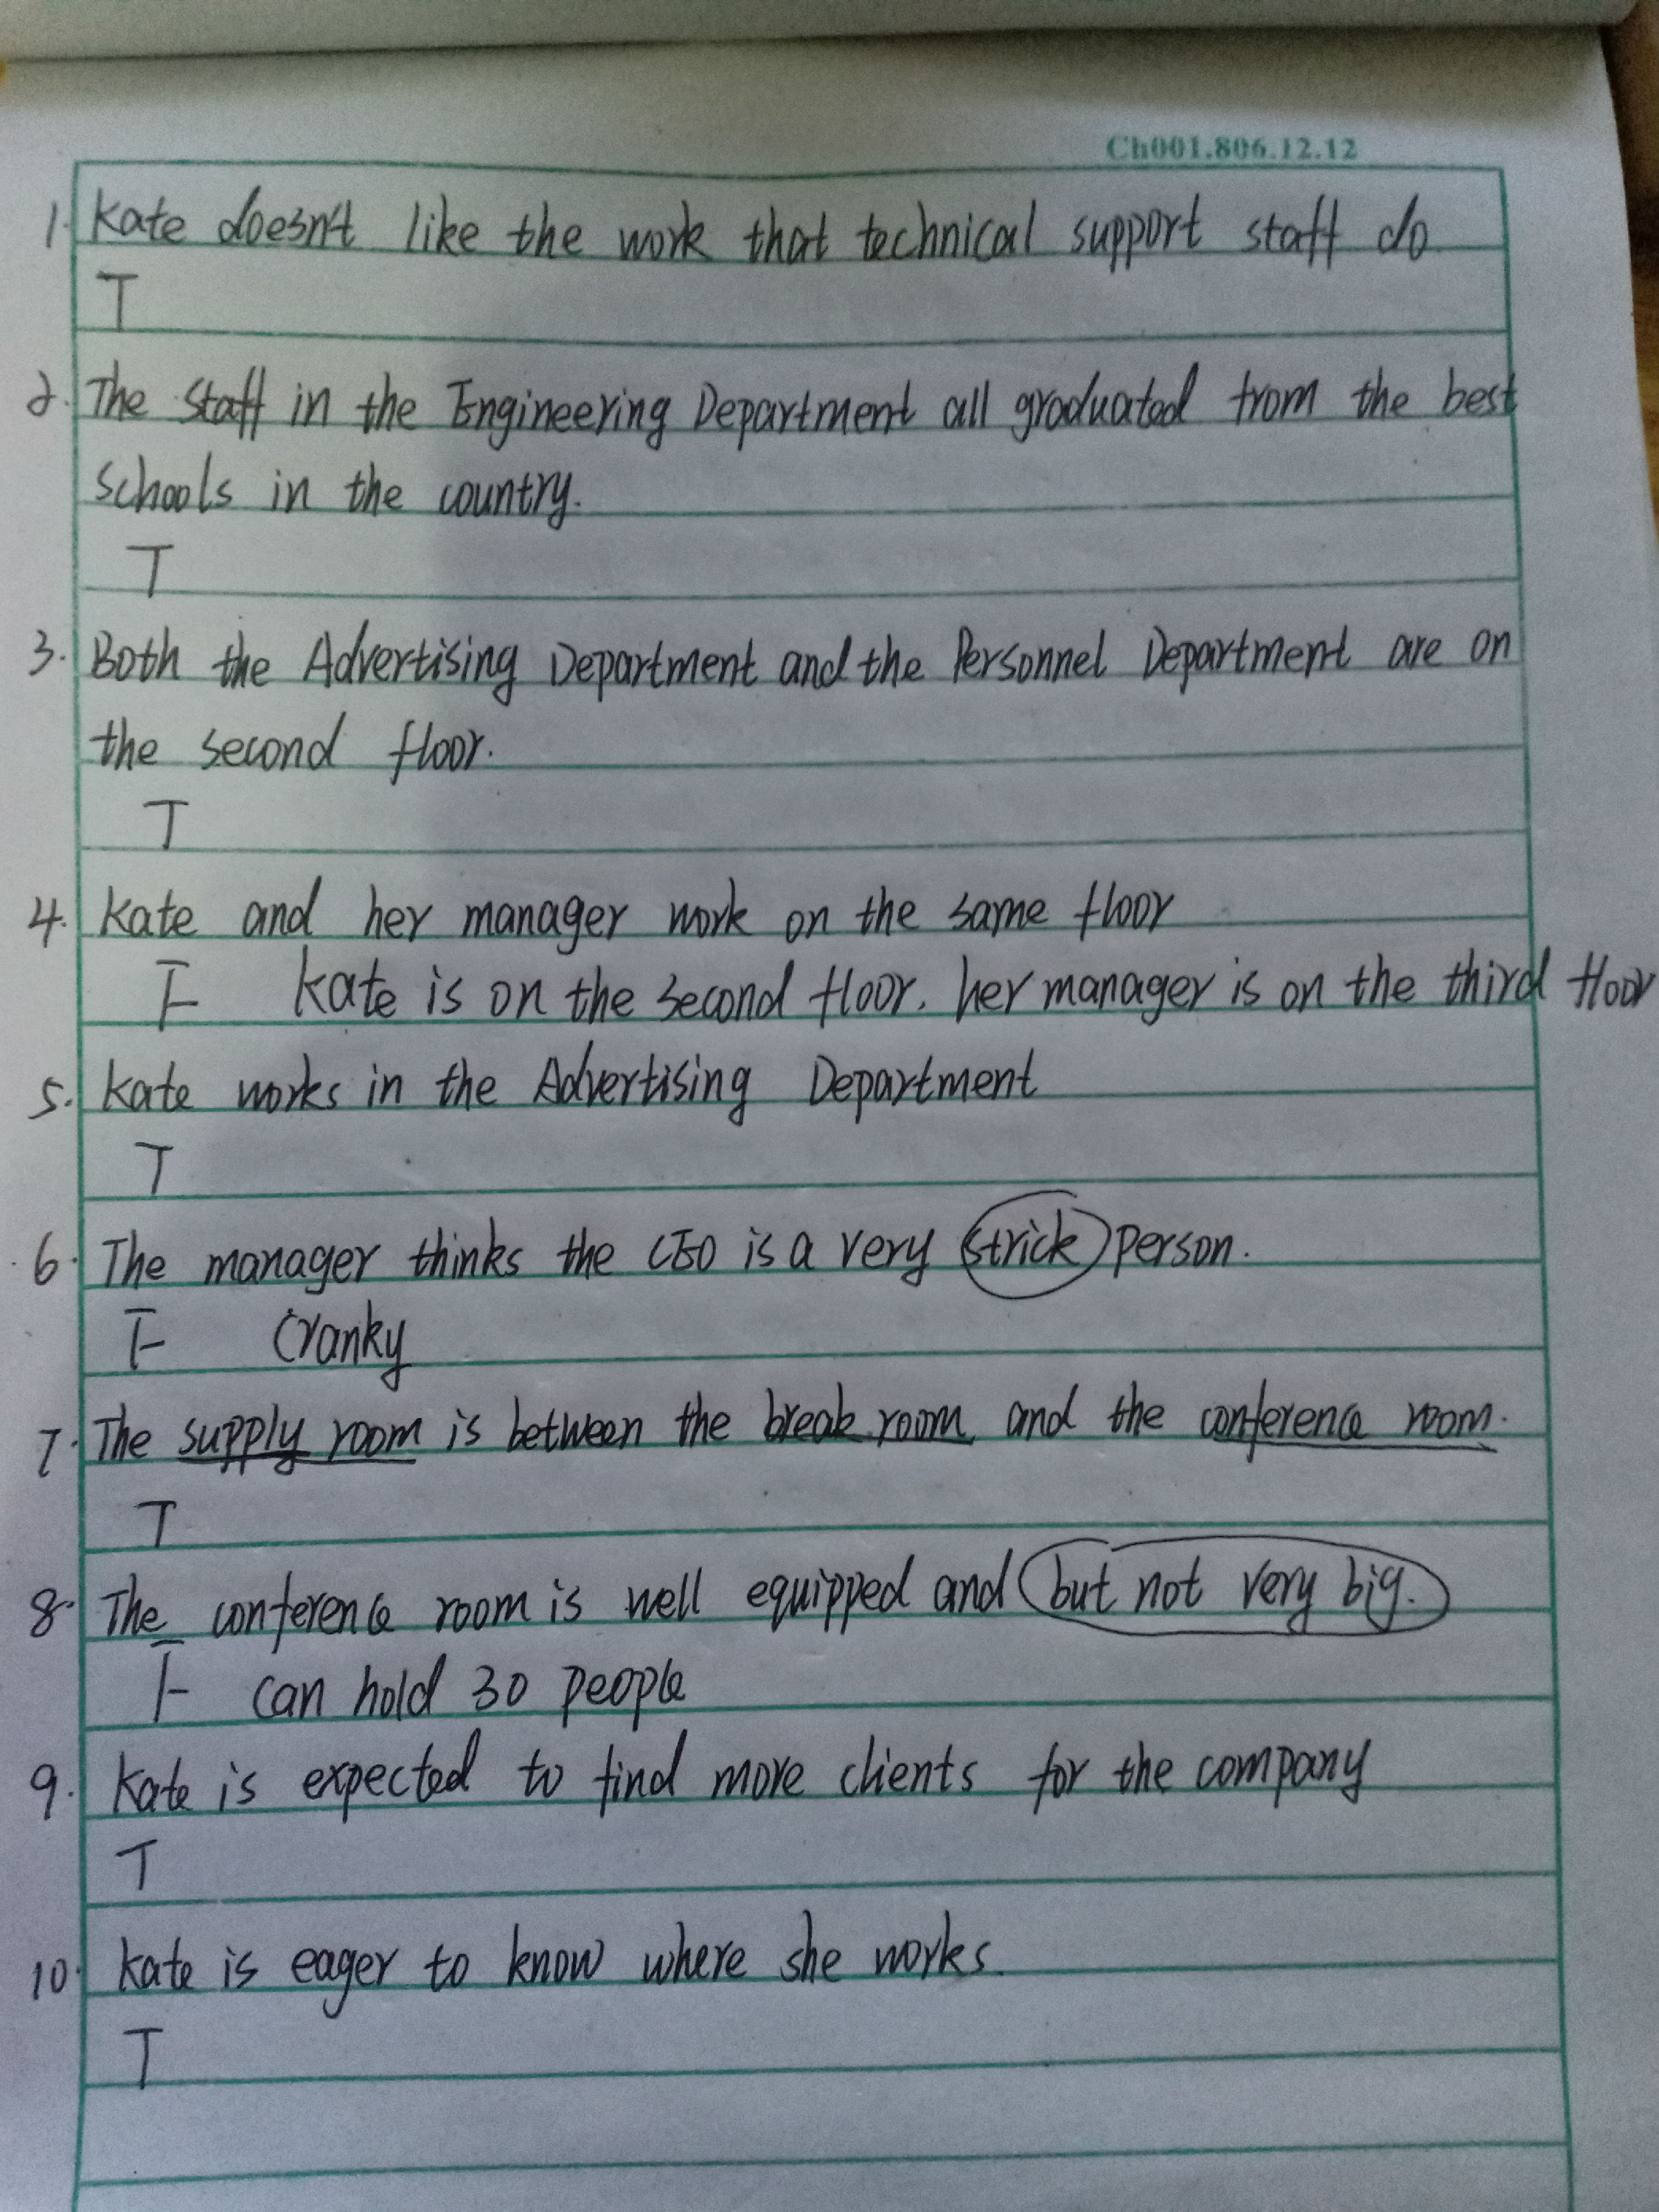 Ch001.806.12.12
1. Kate doesn't like the work that technical support staff do
T
2. The staff in the Engineering Department all graduated from the best
schools in the country.
T
3. Both the Advertising Department and the Personnel Department are on
the second floor.
T
4. Kate and her manager work on the same floor
F Kate is on the second floor. her manager is on the third floor
5. Kate works in the Advertising Department
T
6. The manager thinks the CEO is a very strick person.
F Cranky
7. The supply room is between the break room and the conference room.
T
8. The conference room is well equipped and but not very big.
F can hold 30 people
9. Kate is expected to find more clients for the company
T
10. Kate is eager to know where she works.
T